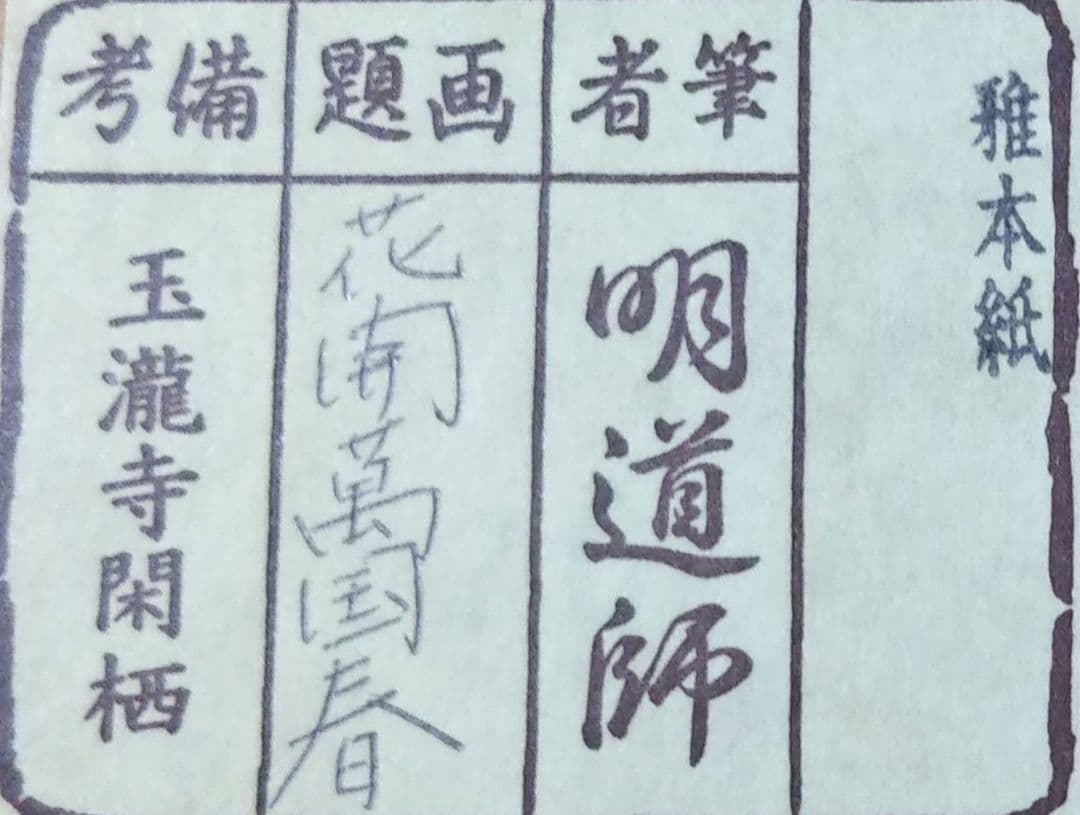 雅本紙
筆者
明道師
画題
花開萬国春
備考
玉瀧寺閑栖